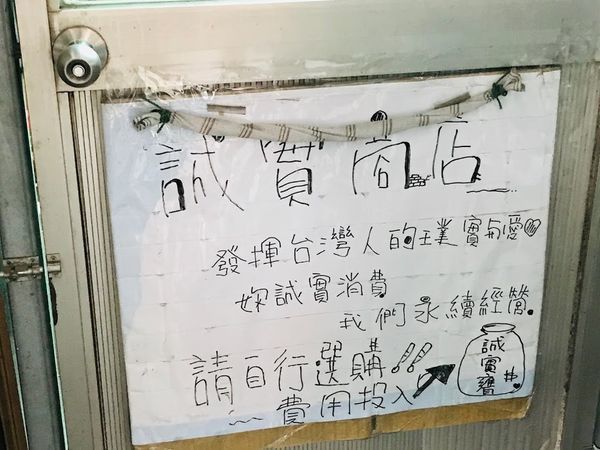 誠實商店
發揮台灣人的璞實與愛♡
妳誠實消費
我們永續經營.
請自行選購!!
費用投入
誠實寶